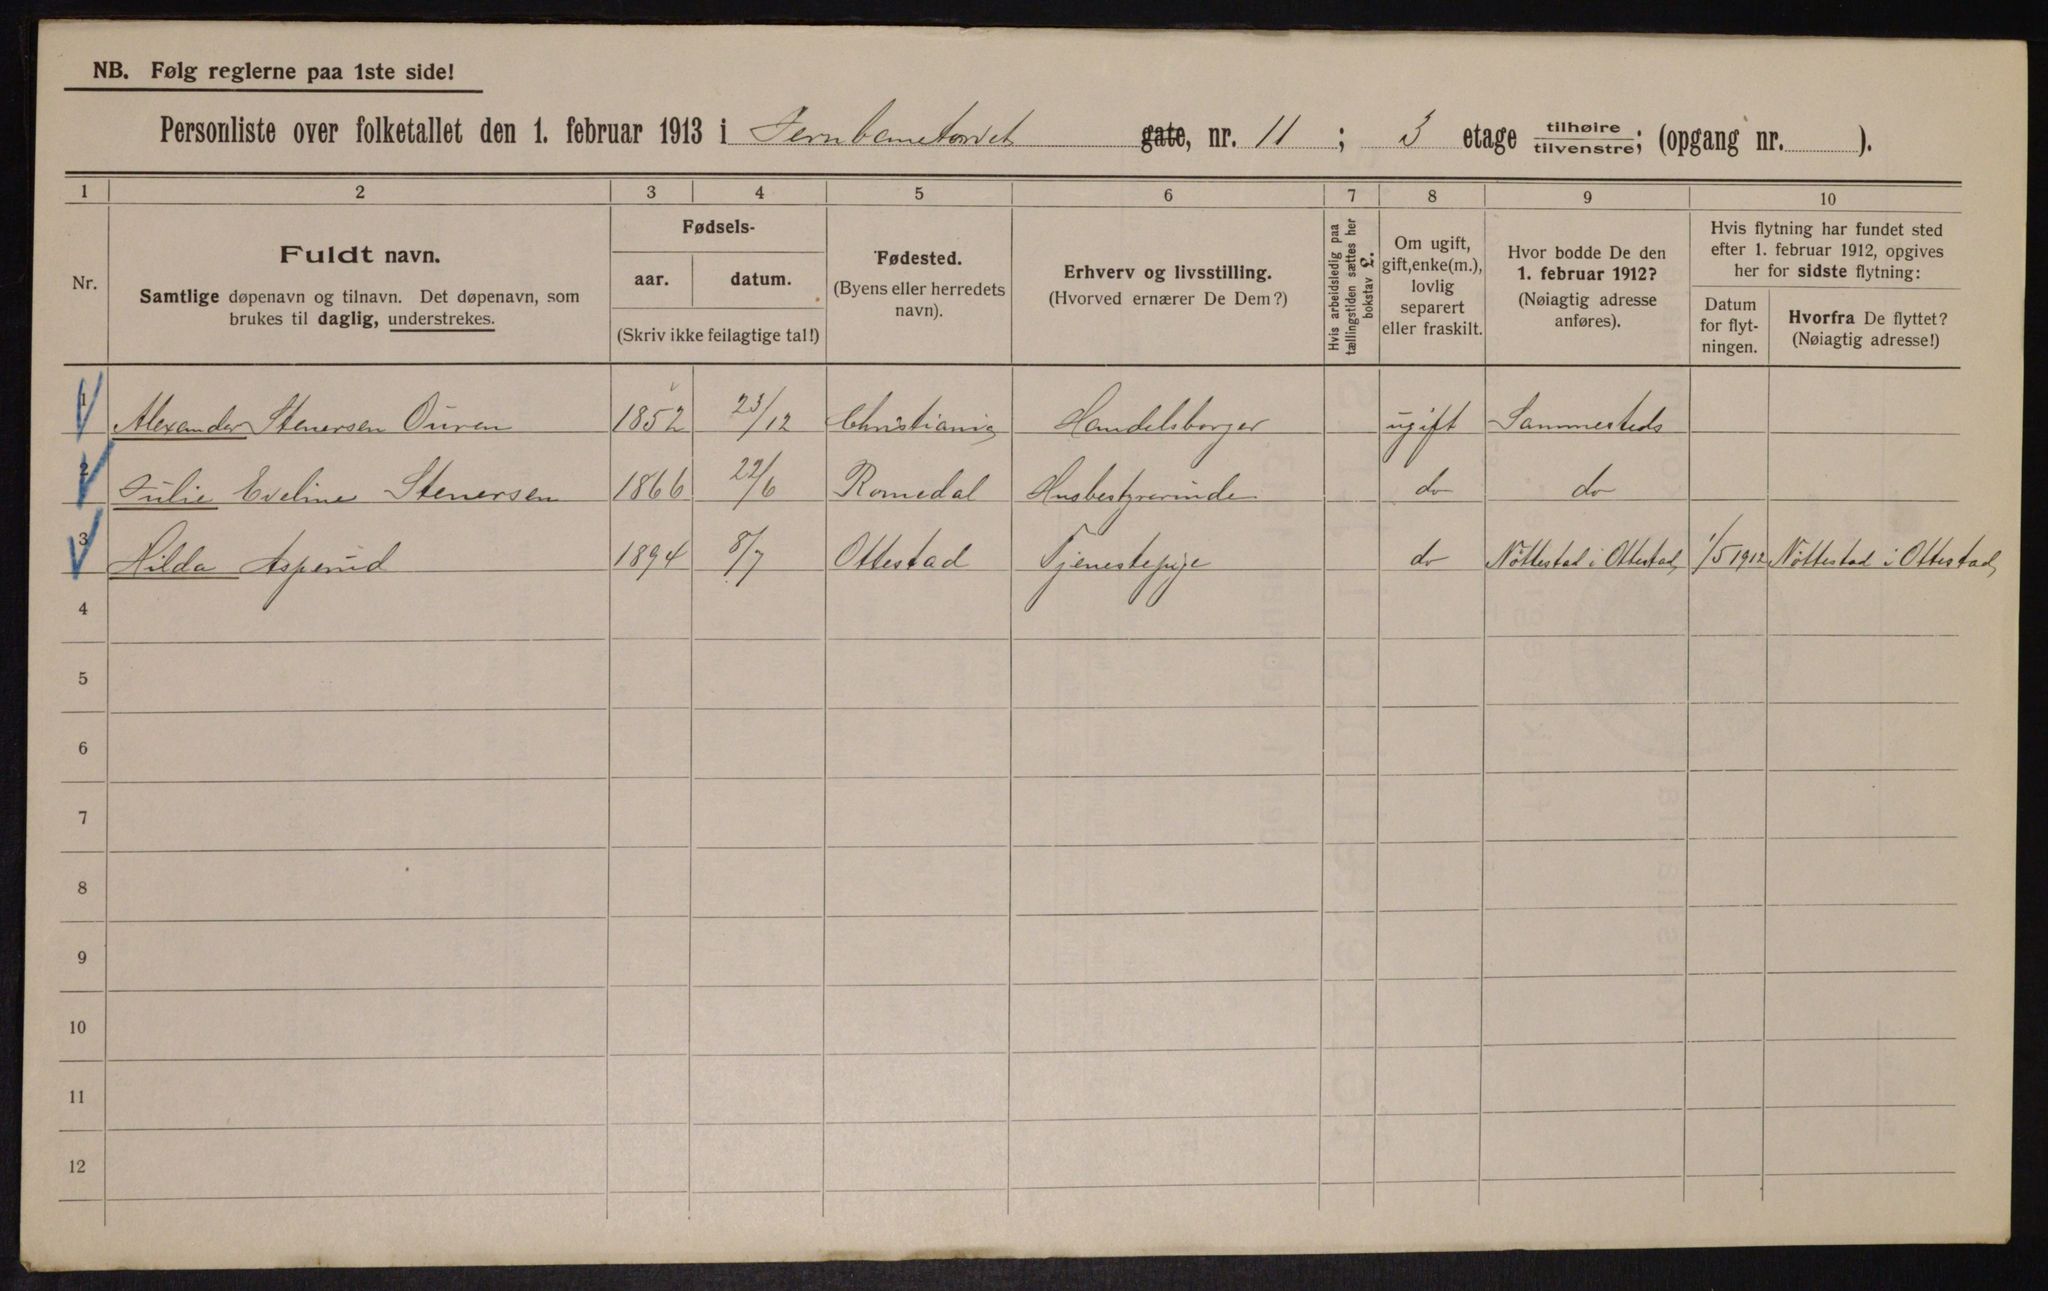 NB. Følg reglerne paa 1ste side!
Personliste over folketallet den 1. februar 1913 i Jernbanetorvet gate, nr. 11 ; 3 etage tilhøire tilvenstre; (opgang nr. ).
1 2 3 4 5 6 7 8 9 10
Nr.
Fuldt navn.
Samtlige døpenavn og tilnavn. Det døpenavn, som
brukes til daglig, understrekes.
Fødsels-
aar. datum.
(Skriv ikke feilagtige tal!)
Fødested.
(Byens eller herredets
navn).
Erhverv og livsstilling.
(Hvorved ernærer De Dem?)
Hvis arbeidsledig paa
tællingstiden sættes her
bokstav L.
Om ugift,
gift, enke(m.),
lovlig
separert
eller fraskilt.
Hvor bodde De den
1. februar 1912?
(Nøiagtig adresse
anføres).
Hvis flytning har fundet sted
efter 1. februar 1912, opgives
her for sidste flytning:
Datum
for flyt-
ningen.
Hvorfra De flyttet?
(Nøiagtig adresse!)
1 Alexander Stenersen Ouren 1852 23/12 Christiania Handelsborger ugift Sammesteds
2 Julie Eveline Stenersen 1866 22/6 Romedal Husbestyrerinde do do
3 Hilda Asperud 1894 8/7 Ottestad Tjenestepige do Nøttestad i Ottestad 1/5 1912 Nøttestad i Ottestad
4
5
6
7
8
9
10
11
12